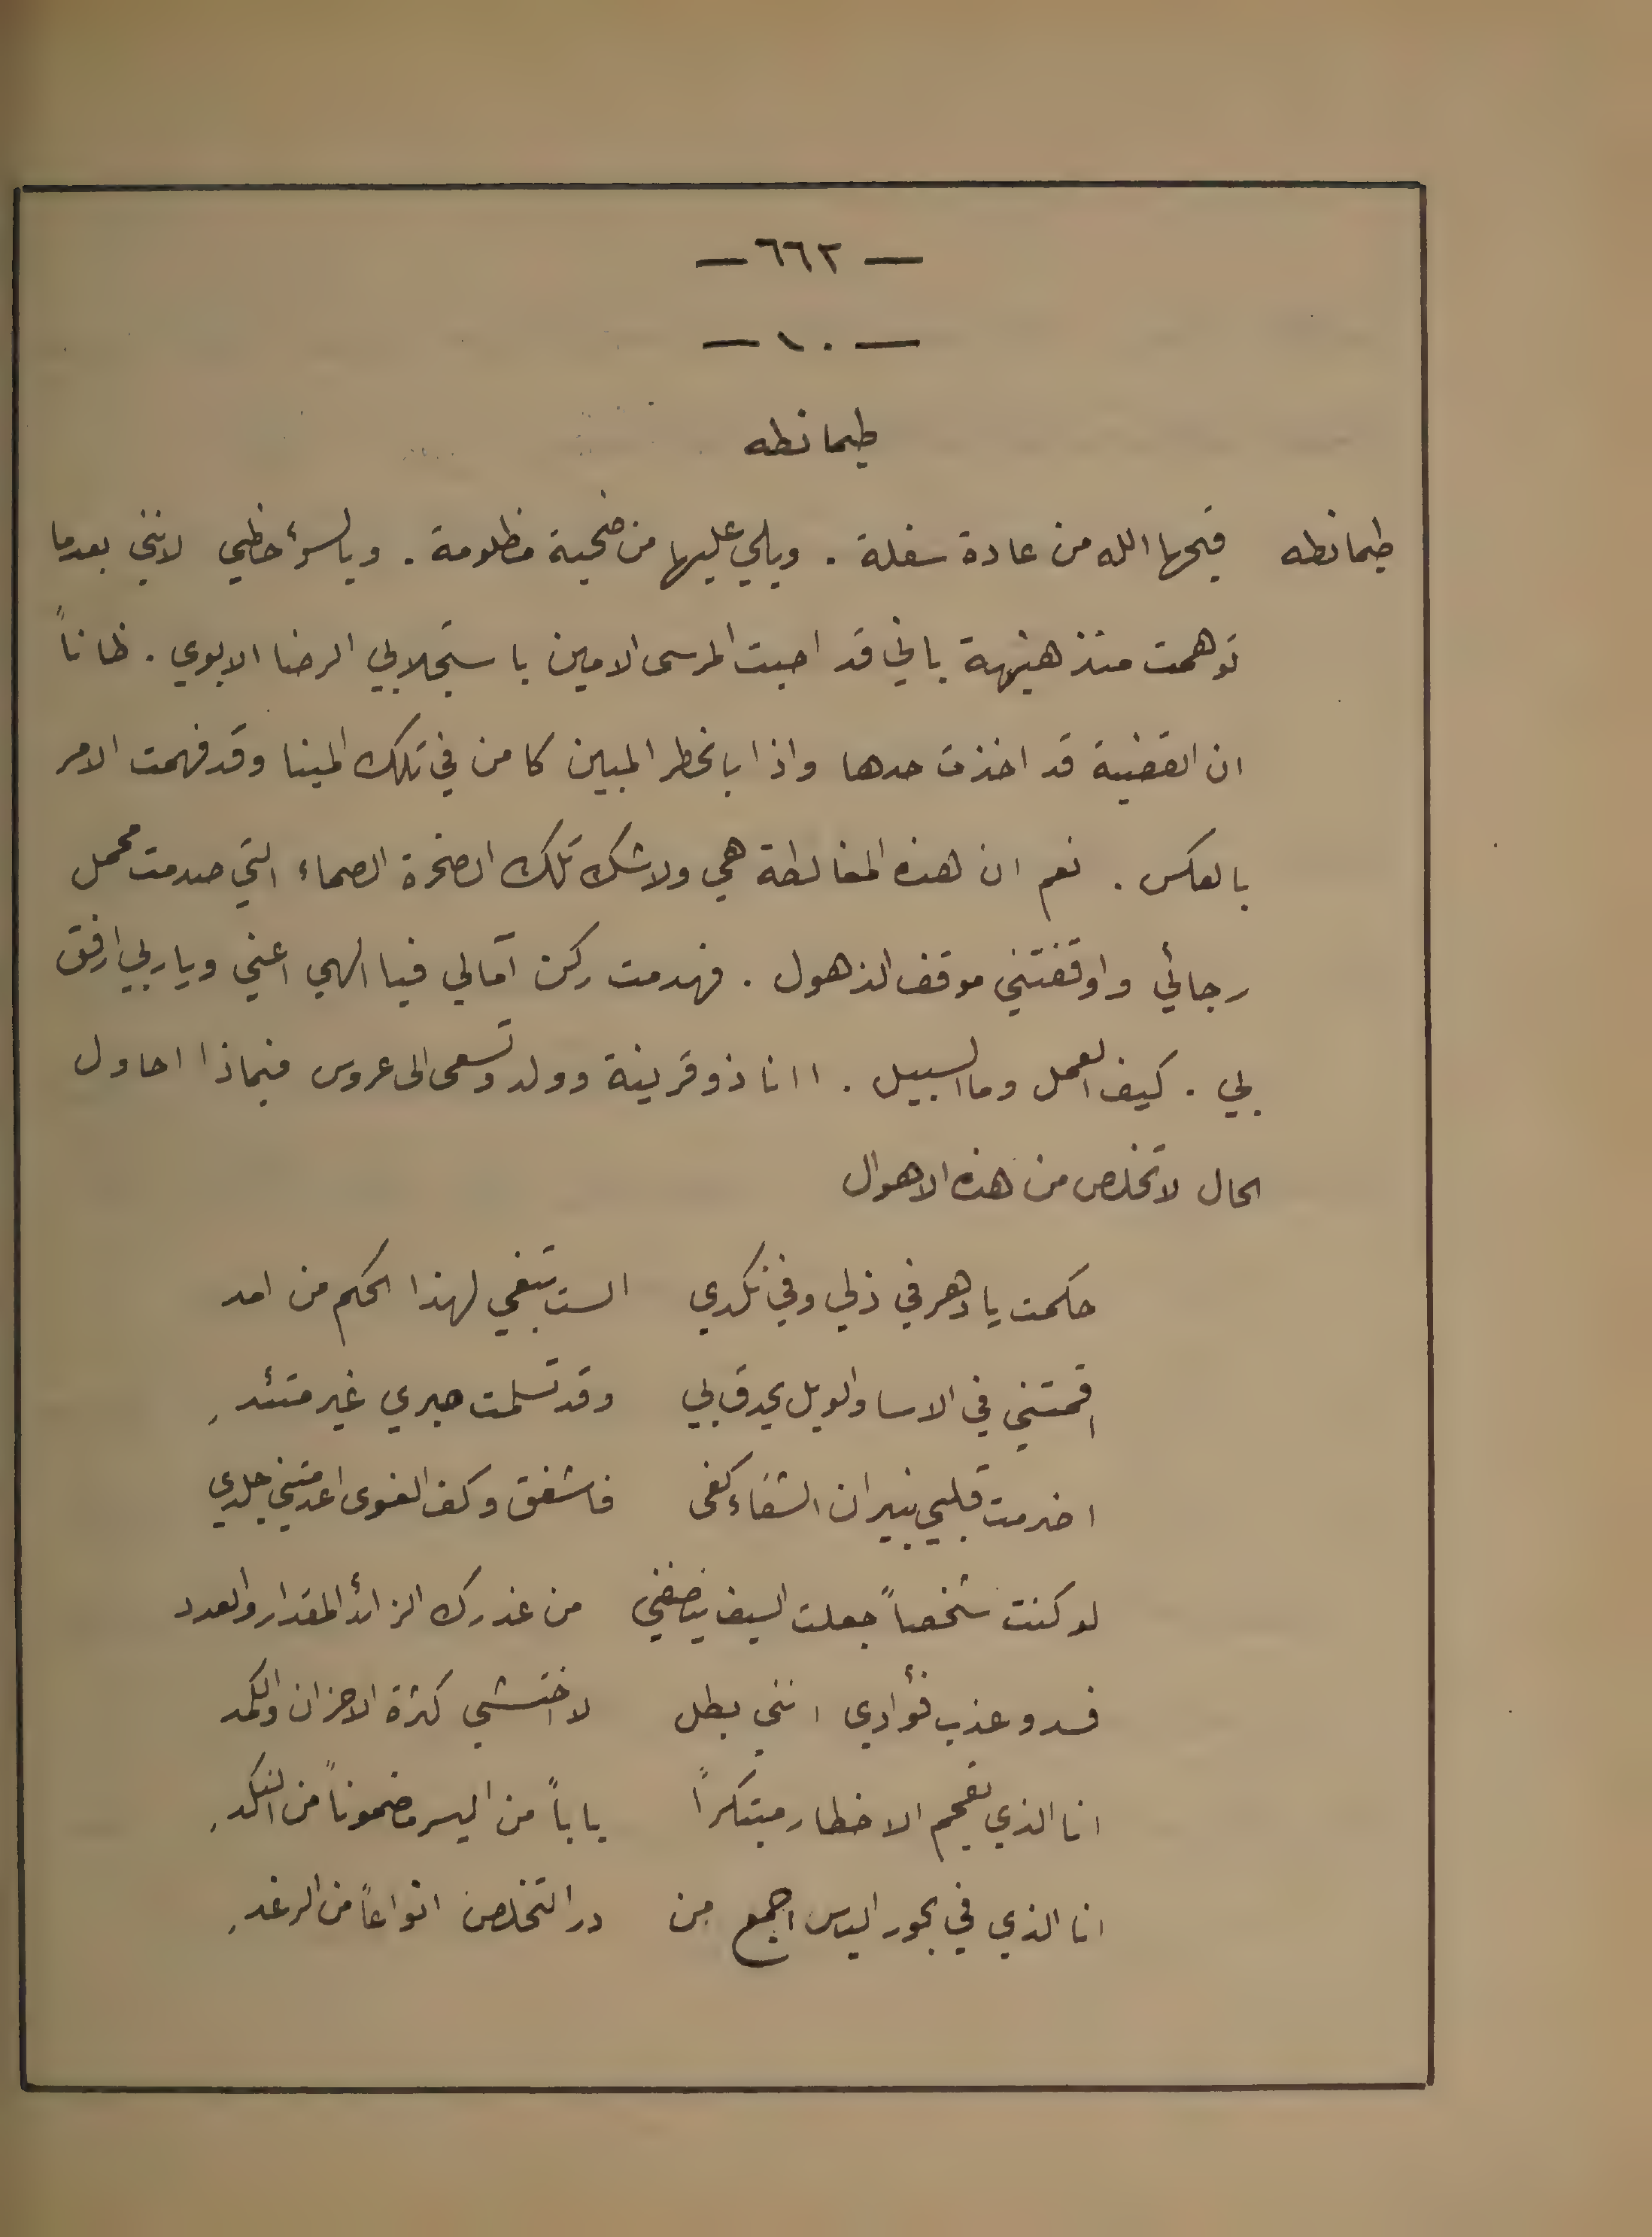 — ٦٦٢ —
— ١٠ —
طيمانطه
طيمانطه قبحها الله من عادة سفلة . ويلي عليها من ضحية مظلومة . ويا لسؤ حظي لانني بعدما
توهمت منذ هنيهة باني قد اصبت المرسى الامين باستجلابي الرضا الابوي . ظاناً
ان القضية قد اخذت حدها واذا بالخطر المبين كامن في تلك المينا وقد فهمت الامر
بالعكس . نعم ان هذه المغالطة هي ولا شك تلك الصخرة الصماء التي صدمت محمل
رجائي واوقفتني موقف الذهول . فهدمت ركن آمالي فيا الهي اعني ويا ربي ارفق
بي . كيف العمل وما السبيل . اانا ذو قرينة وولد وتسعى الى عروس فبماذا احاول
الحال لاتخلص من هذه الاهوال
حكمت يا دهر في ذلي وفي نكدي الست تبغي لهذا الحكم من امد
اقمتني في الاسا والويل يحدق بي وقد تسلمت صبري غير متئدِ
اضرمت قلبي بنيران الشقاء كفى فاشفق وكف القوى اعدمتني جلدي
لو كنت شخصاً جعلت السيف ينصفني من غدرك الزائد المقدار والعدد
فسد وعذب فؤادي انني بطل لا اختشي كثرة الاحزان والكمد
انا الذي تقحم الاخطار مبتكراً باباً من اليسر مضموناً من النكدِ
انا الذي في بحور الياس اجمع من در التخلص انواعاً من الرغدِ